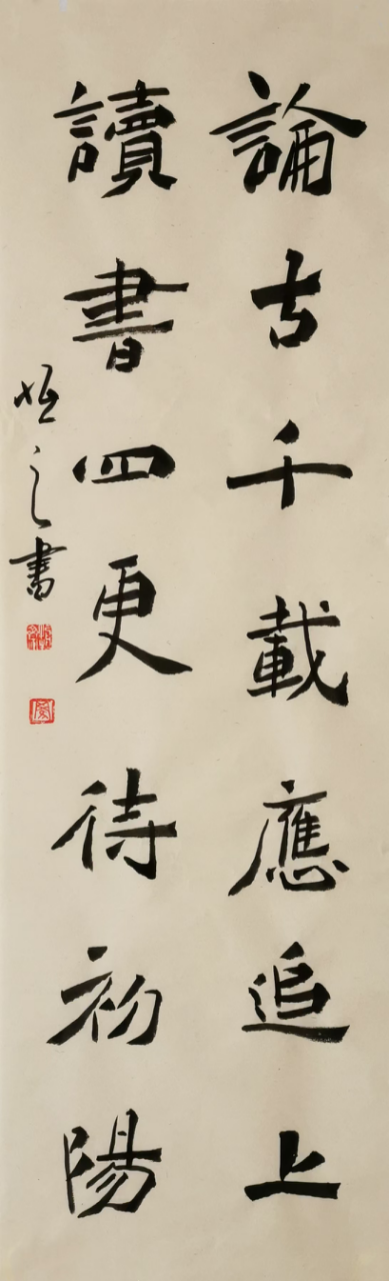 論古千載應追上
讀書四更待初陽
恒之書